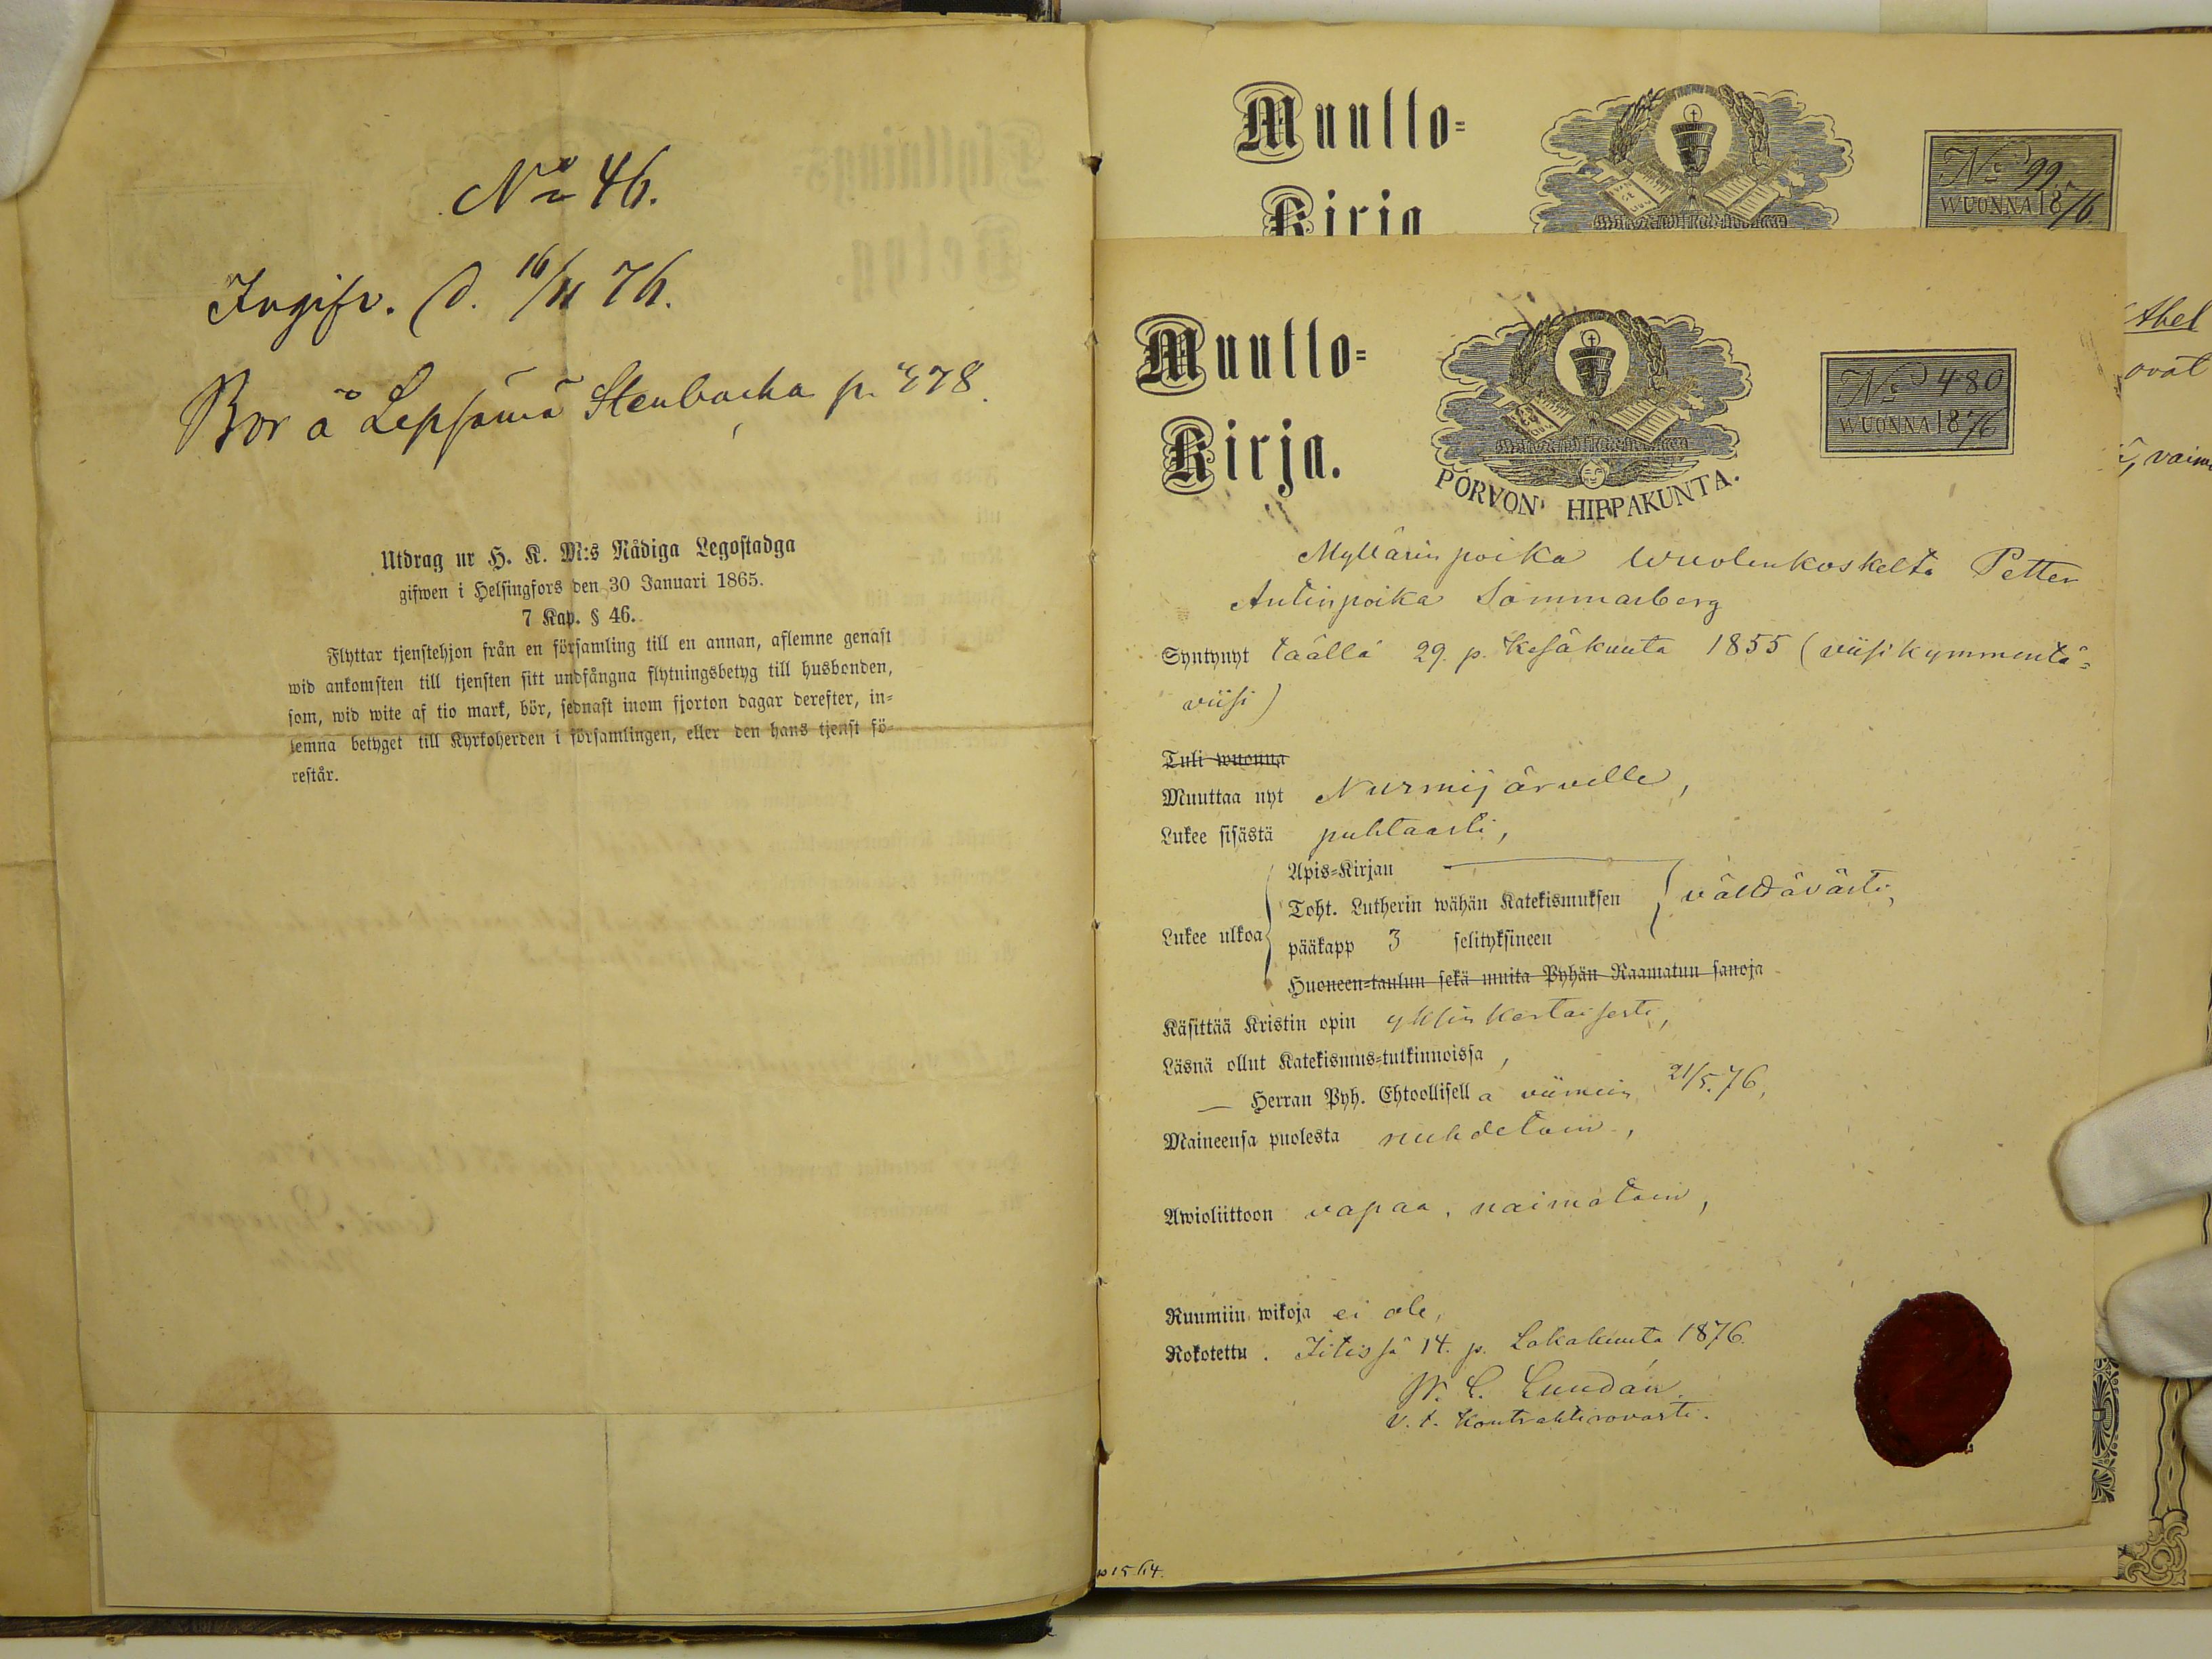 No 46.
Ingifv. d. 16/11 76.
Bor å Lepsämä Stenbacka p. 278.
Utdrag ur H. K. M:s Nådiga Legostadga
gifwen i Helsingfors den 30 Januari 1865.
7 Kap. § 46.
Flyttar tjenstehjon från en församling till en annan, aflemne genast
wid ankomsten till tjensten sitt undfångna flytningsbetyg till husbonden,
som, wid wite af tio mark, bör, sednast inom fjorton dagar derefter, in=
lemna betyget till Kyrkoherden i församlingen, eller den hans tjenst fö=
restår.
Muutto=
Kirja
No 99
WUONNA 1876
Abel
ovat
vaim
Muutto=
Kirja.
PORVON HIPPAKUNTA.
No 480
WUONNA 1876
Myllärin poika Wuolenkoskelta Petter
Antinpoika Sommarberg
Syntynyt täällä 29. p. Kesäkuuta 1855 (viisikymmentä=
viisi)
Tuli wuonna
Muuttaa nyt Nurmijärvelle,
Lukee sisästä puhtaasti,
Apis=Kirjan
Toht. Lutherin wähän Katekismuksen välttävästi,
Lukee ulkoa
pääkapp 3 selityksineen
Huoneen=taulun sekä muita Pyhän Raamatun sanoja
Käsittää Kristin opin yksinkertaisesti,
Läsnä ollut Katekismus=tutkinnoissa,
— Herran Pyh. Ehtoollisella viimein 21/5. 76,
Maineensa puolesta nuhdetoin,
Awioliittoon vapaa, naimatoin,
Ruumiin wikoja ei ole,
Rokotettu. Iitissä 14. p. Lokakuuta 1876.
Lundán.
v. t. Kontrahtirovasti.